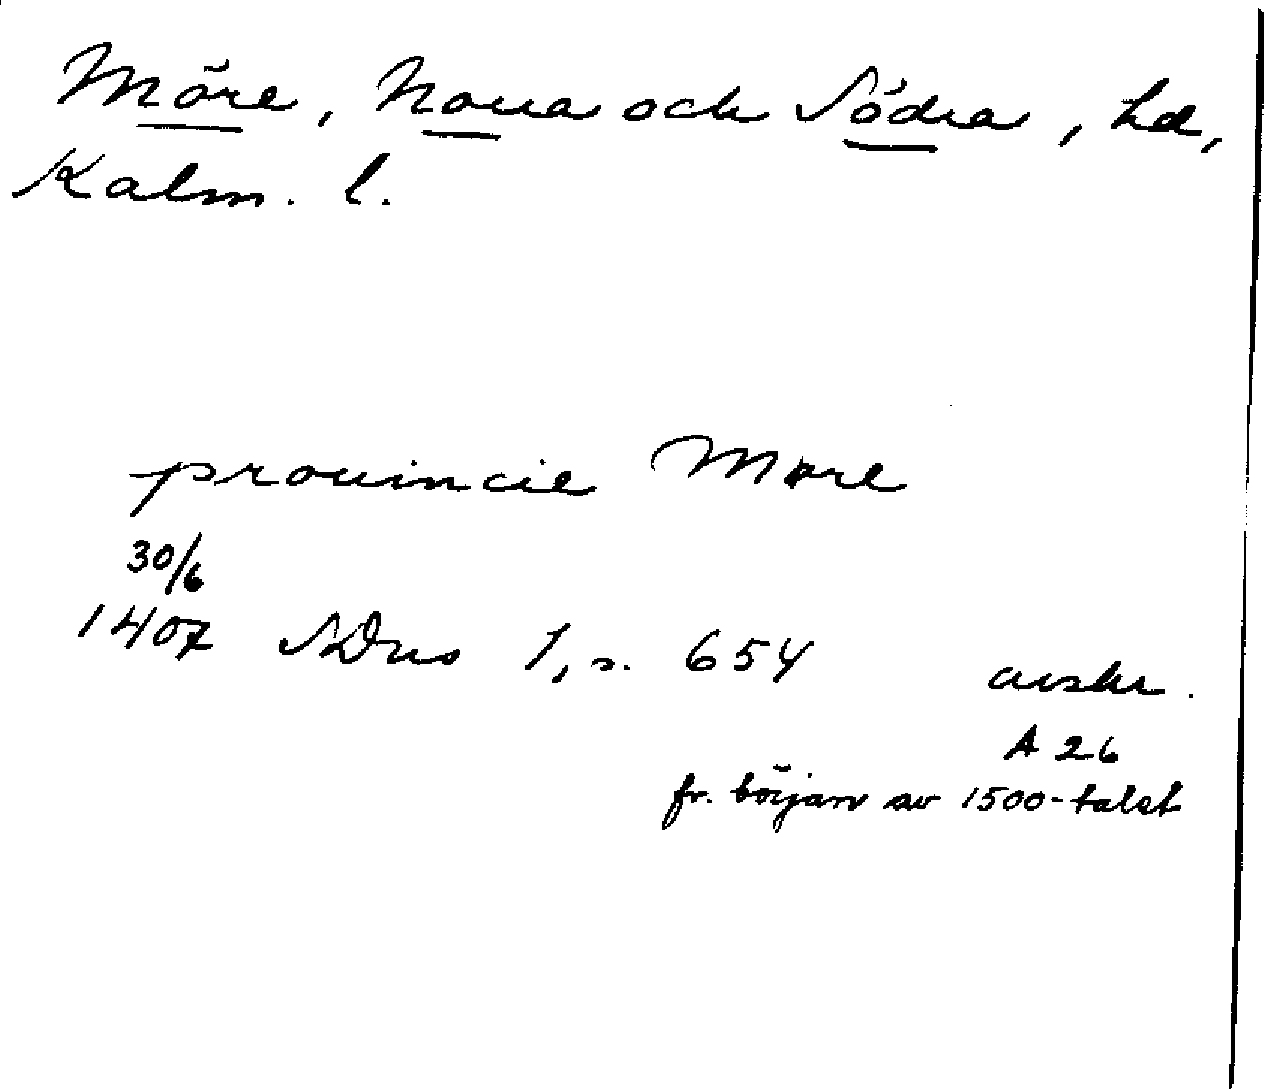 Möre, Norra och Södra, hd,
Kalm. l.
prouincie More
30/6
1407 SDns 1, s. 654
avskr.
A 26
fr. början av 1500-talet